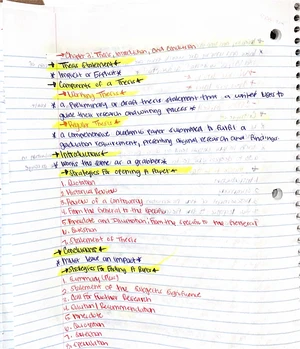 → Chapter 3: Thesis, Introduction, and Conclusion
→ Thesis Statement
* Implicit or Explicit *
→ Components of a Thesis
→ Working Thesis
* a preliminary or draft thesis statement that a writer uses to
guide their research and writing process *
→ Regular Thesis
* a comprehensive academic paper submitted to fulfill a
graduation requirement, presenting original research and findings
→ Introductions
* Works the same as a grabber *
→ Strategies for Opening A Paper
1. Quotation
2. Historical Review
3. Review of a Controversy
4. From the General to the Specific
5. Anecdote and Illustration: From the Specific to the General
6. Question
7. Statement of Thesis
→ Conclusions
* Must leave an impact *
→ Strategies for Ending A Paper
1. Summary (Plus)
2. Statement of the Subject's Significance
3. Call for Further Research
4. Solution / Recommendation
5. Anecdote
6. Quotation
7. Question
8. Speculation